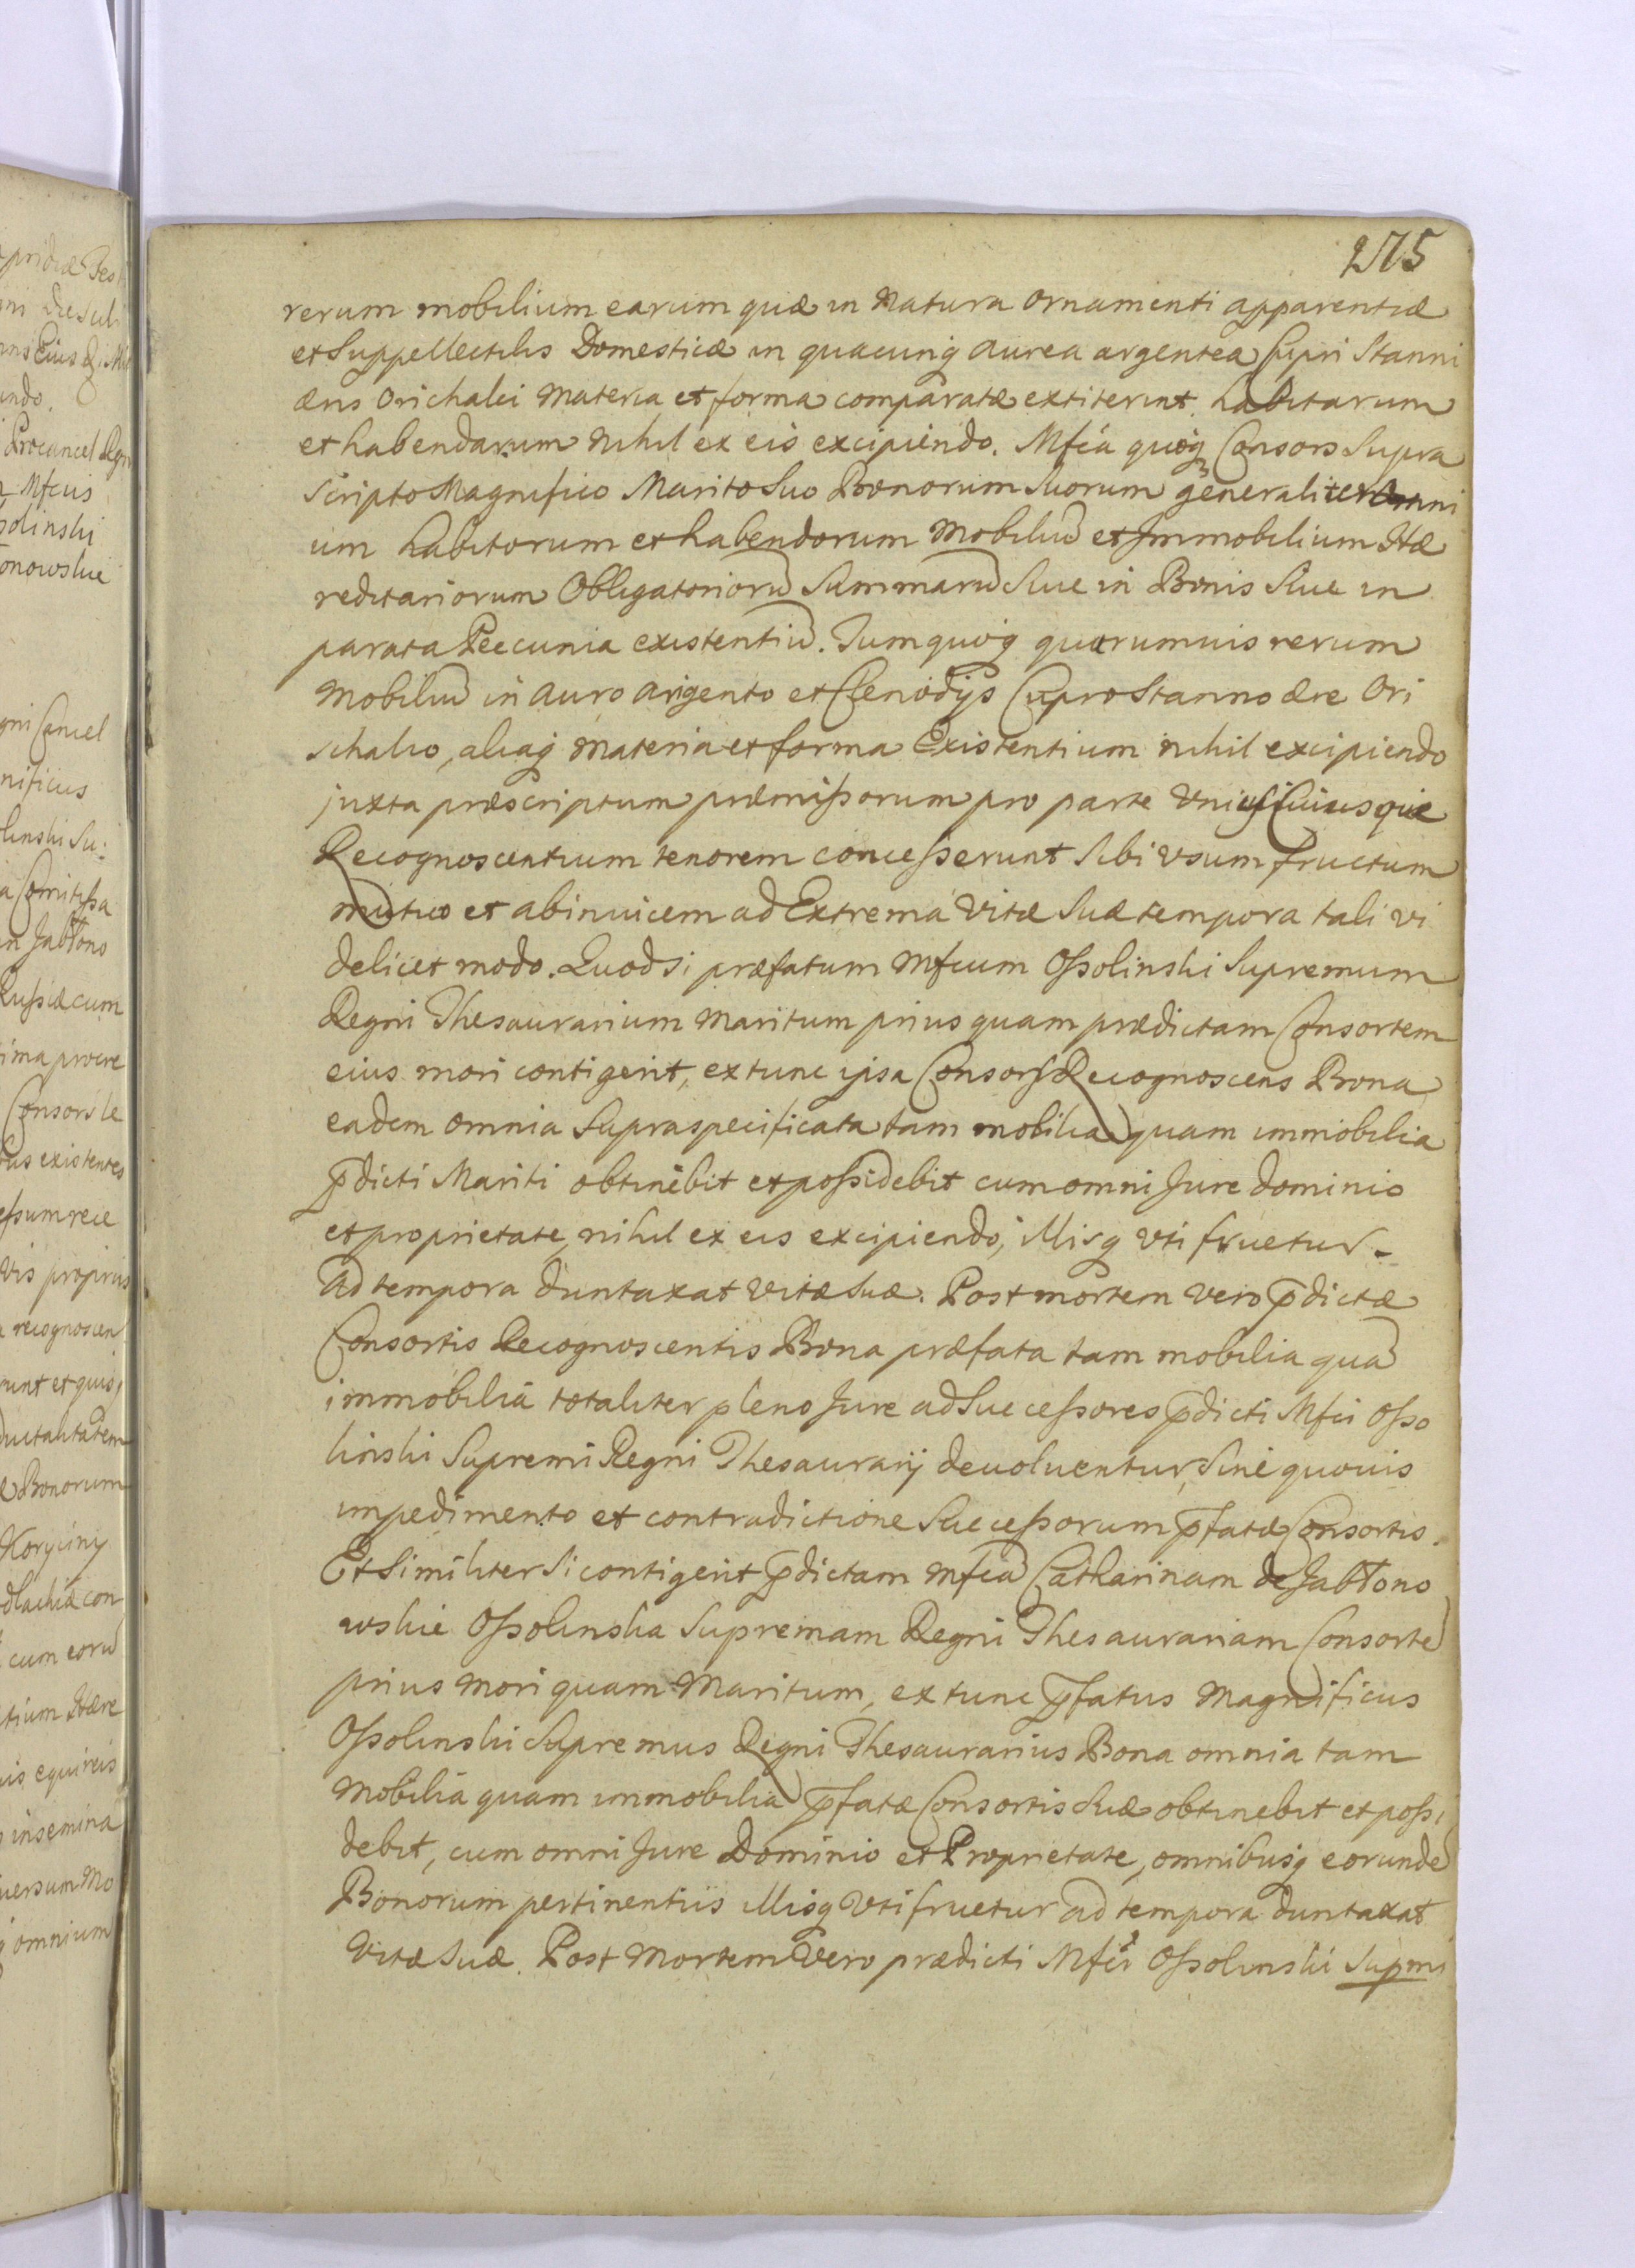 275
rerum mobilium earum quæ in Natura Ornamenti apparentiæ
et Suppellectilis Domesticæ in quacunq aurea argentea Cupri Stanni
æris Orichalci materia et forma comparatæ extiterint habitarum
et habendarum Nihil ex eis excipiendo. Mfca quoq Consors Supra
scripto Magnifico Marito Suo Bonorum Suorum generaliter omni
um habitorum et habendorum Mobiliū et Immobilium Hæ
reditariorum Obligatoriorū Summarū Siue in Bonis Siue in
parata Peecunia existentiū. Tum quoq quarumuis rerum
Mobiliū in auro argento et Clenodijs Cupro Stanno ære Ori
schalco, aliaq materia et forma Existentium nihil excipiendo
juxta præscriptum præmissorum pro parte Vniuscuiusque
Recognoscentium tenorem concesserunt Sibi vsum fructum
mutuo et abinuicem ad Extrema Vitæ Suæ tempora tali vi
delicet modo. Quod Si præfatum Mfcum Ossolinski Supremum
Regni Thesaurarium Maritum prius quam prædictam Consortem
eius mori contigerit, extunc ipsa Consors Recognoscens Bona
eadem omnia Supraspecificata tam mobilia quam immobilia
p̄dicti Mariti obtinebit et possidebit cum omni Jure dominio
et proprietate, nihil ex eis excipiendo, illisq vti fruetur
ad tempora duntaxat vitæ Suæ. Post mortem vero p̄dictæ
Consortis Recognoscentis Bona præfata tam mobilia quā
immobilia totaliter pleno Jure ad Successores p̄dicti Mfci Osso
linski Supremi Regni Thesaurarij deuoluentur, Sine quouis
impedimento et contradictione Successorum p̄fatæ Consortis.
Et Similiter Si contigerit p̄dictam Mfcā Catharinam de Jabłono
wskie Ossolinska Supremam Regni Thesaurariam Consortē
prius mori quam Maritum, extunc p̄fatus Magnificus
Ossolinski Supremus Regni Thesaurarius Bona omnia tam
Mobilia quam immobilia p̄fatæ Consortis Suæ obtinebit et possi
debit, cum omni Jure Dominio et Proprietate, omnibusq eorundē
Bonorum pertinentiis illisq Vti fruetur ad tempora duntaxat
Vitæ Suæ. Post Mortem Vero prædicti Mfci Ossolinski Supmi